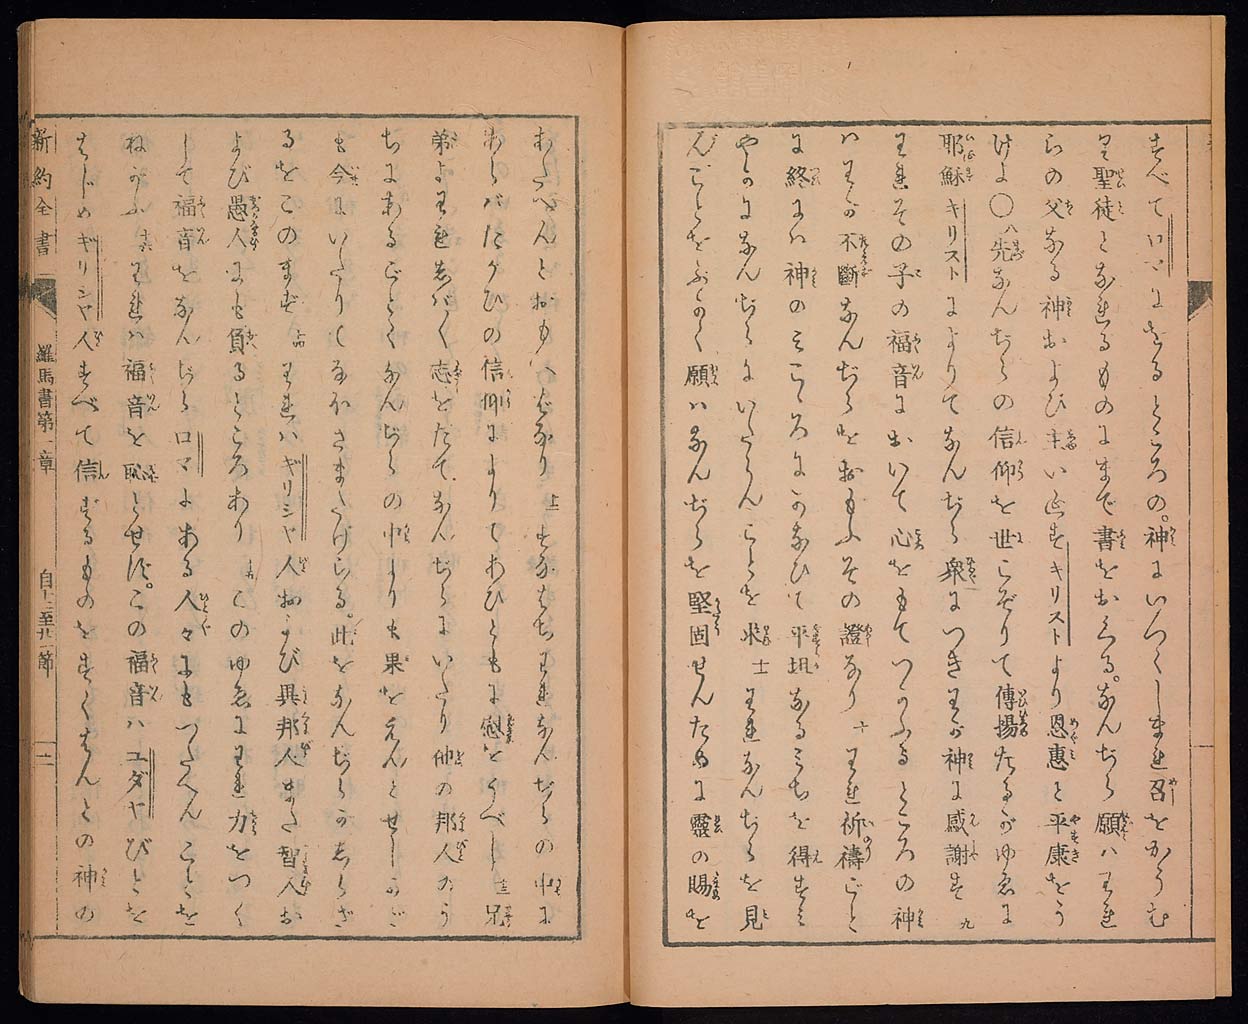 すべてロマにをるところの。神にいつくしまれ召をかうむ
り聖徒となれるものにまで書をおくる。なんぢら願ハわれ
らの父なる神および主いゑすキリストより恩惠と平康をう
けよ〇八先なんぢらの信仰を世こぞりて傳揚たるがゆゑに
耶穌キリストによりてなんぢら衆につきわが神に感謝す九
われその子の福音において心をもてつかふるところの神
ハわが不斷なんぢらをおもふその證なり十われ祈禱ごと
に終にハ神のみこころにかなひて平坦なるみちを得すみ
やかになんぢらにいたらんことを求十一われなんぢらを見
んことをふかく願ハなんぢらを堅固せんために靈の賜を
あたへんとおもへばなり十二すなはちわれなんぢらの中に
あらバたがひの信仰によりてあひともに慰をうべし十三兄
弟よわれしばしば志をたてなんぢらにいたり他の邦人のう
ちにあるごとくなんぢらの中よりも果をえんとせしかど
も今にいたりてなほさまたげらる。此をなんぢらがしらざ
るをこのまず十四われハギリシヤ人および異邦人また智人お
よび愚人にも負るところあり十五このゆゑにわれ力をつく
して福音をなんぢらロマにある人々にもつたへんことを
ねがふ十六われハ福音を恥とせず。この福音ハユダヤびとを
はじめギリシヤ人すべて信ずるものをすくはんとの神の
新約全書 羅馬書第一章 自十二至廿一節